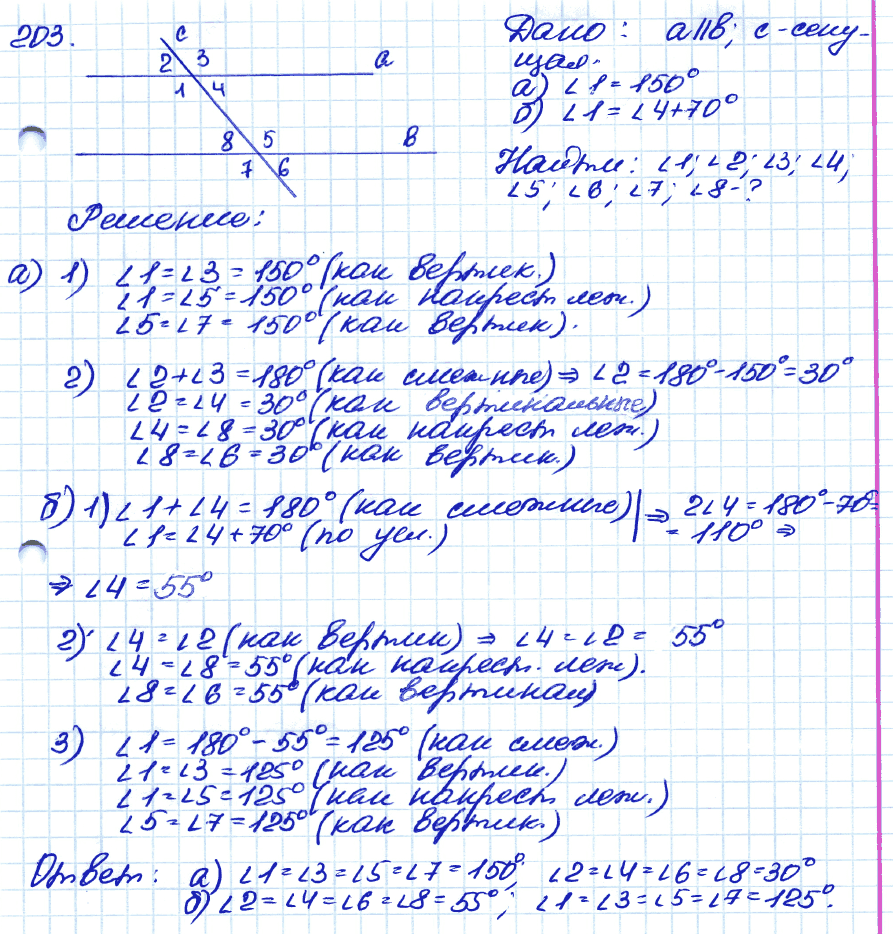 203.
c
2 3
a
1 4
8 5
в
7 6
Дано: a||в; c-секу-
щая.
а) ∠1=150°
б) ∠1=∠4+70°
Найти: ∠1; ∠2; ∠3; ∠4;
∠5; ∠6; ∠7; ∠8-?
Решение:
а) 1) ∠1=∠3=150° (как вертик.)
∠1=∠5=150° (как накрест леж.)
∠5=∠7= 150° (как вертик).
2) ∠2+∠3=180° (как смежные) ⇒ ∠2=180°-150°=30°
∠2=∠4=30° (как вертикальные)
∠4=∠8=30° (как накрест леж.)
∠8=∠6=30° (как вертик.)
б) 1) ∠1+∠4=180° (как смежные) | ⇒ 2∠4=180°-70°=
∠1=∠4+70° (по усл.) = 110° ⇒
⇒ ∠4=55°
2) ∠4=∠2 (как вертик) ⇒ ∠4=∠2= 55°
∠4=∠8=55° (как накрест. леж).
∠8=∠6=55° (как вертикал)
3) ∠1=180°-55°=125° (как смеж.)
∠1=∠3=125° (как вертик.)
∠1=∠5=125° (как накрест леж.)
∠5=∠7=125° (как вертик.)
Ответ: а) ∠1=∠3=∠5=∠7=150°; ∠2=∠4=∠6=∠8=30°
б) ∠2=∠4=∠6=∠8=55°; ∠1=∠3=∠5=∠7=125°.